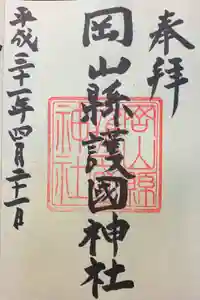 奉拝
岡山縣護國神社
岡山縣
神社
平成三十一年四月二十一日